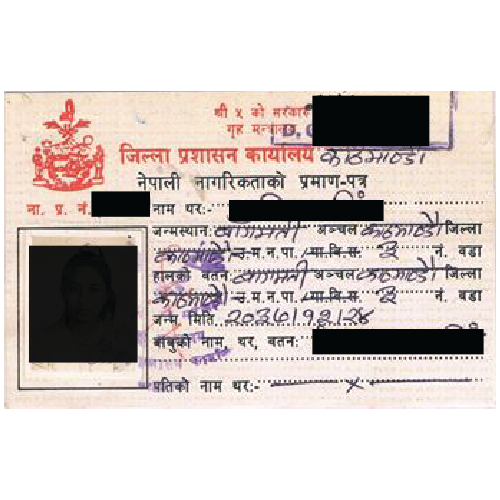 श्री ५ को सरकार
गृह
जिल्ला प्रशासन कार्यालय काठमाण्डौ
नेपाली नागरिकताको प्रमाण-पत्र
ना. प्र. नं. नाम थर:-
जन्मस्थान बागमती अञ्चल काठमाण्डौ जिल्ला
काठमाण्डौ उ.म.न.पा. /गा.वि.स. नं. वडा
हालको वतन:- बागमती अञ्चल काठमाण्डौ जिल्ला
काठमाण्डौ उ.म.न.पा. /गा.वि.स. नं. वडा
जन्म मिति
बाबुको नाम, थर, वतन:
पतिको नाम थर:- x